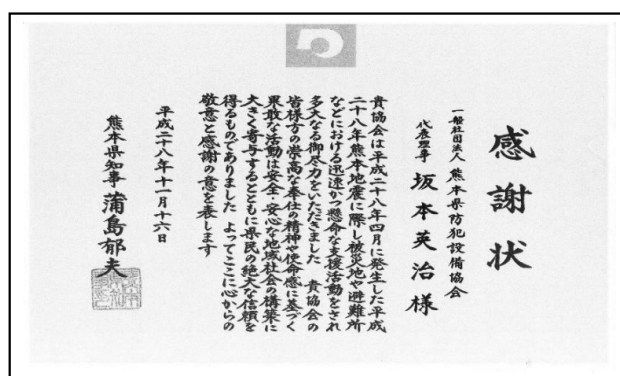 感謝状
一般社団法人 熊本県防犯設備協会
代表理事 坂本英治様
貴協会は平成二十八年四月に発生した平成
二十八年熊本地震に際し被災地や避難所
などにおける迅速かつ懸命な支援活動をされ
多大なる御尽力をいただきました 貴協会の
皆様方の崇高な奉仕の精神や使命感に基づく
果敢な活動は安全・安心な地域社会の構築に
大きく寄与するとともに県民の絶大な信頼を
得るものでありました よってここに心からの
敬意と感謝の意を表します
平成二十八年十一月十六日
熊本県知事 蒲島郁夫